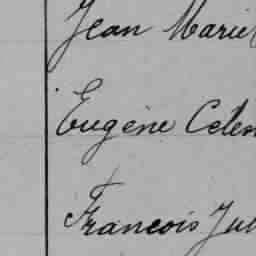 Jean Marie
Eugène Celen
François Jul